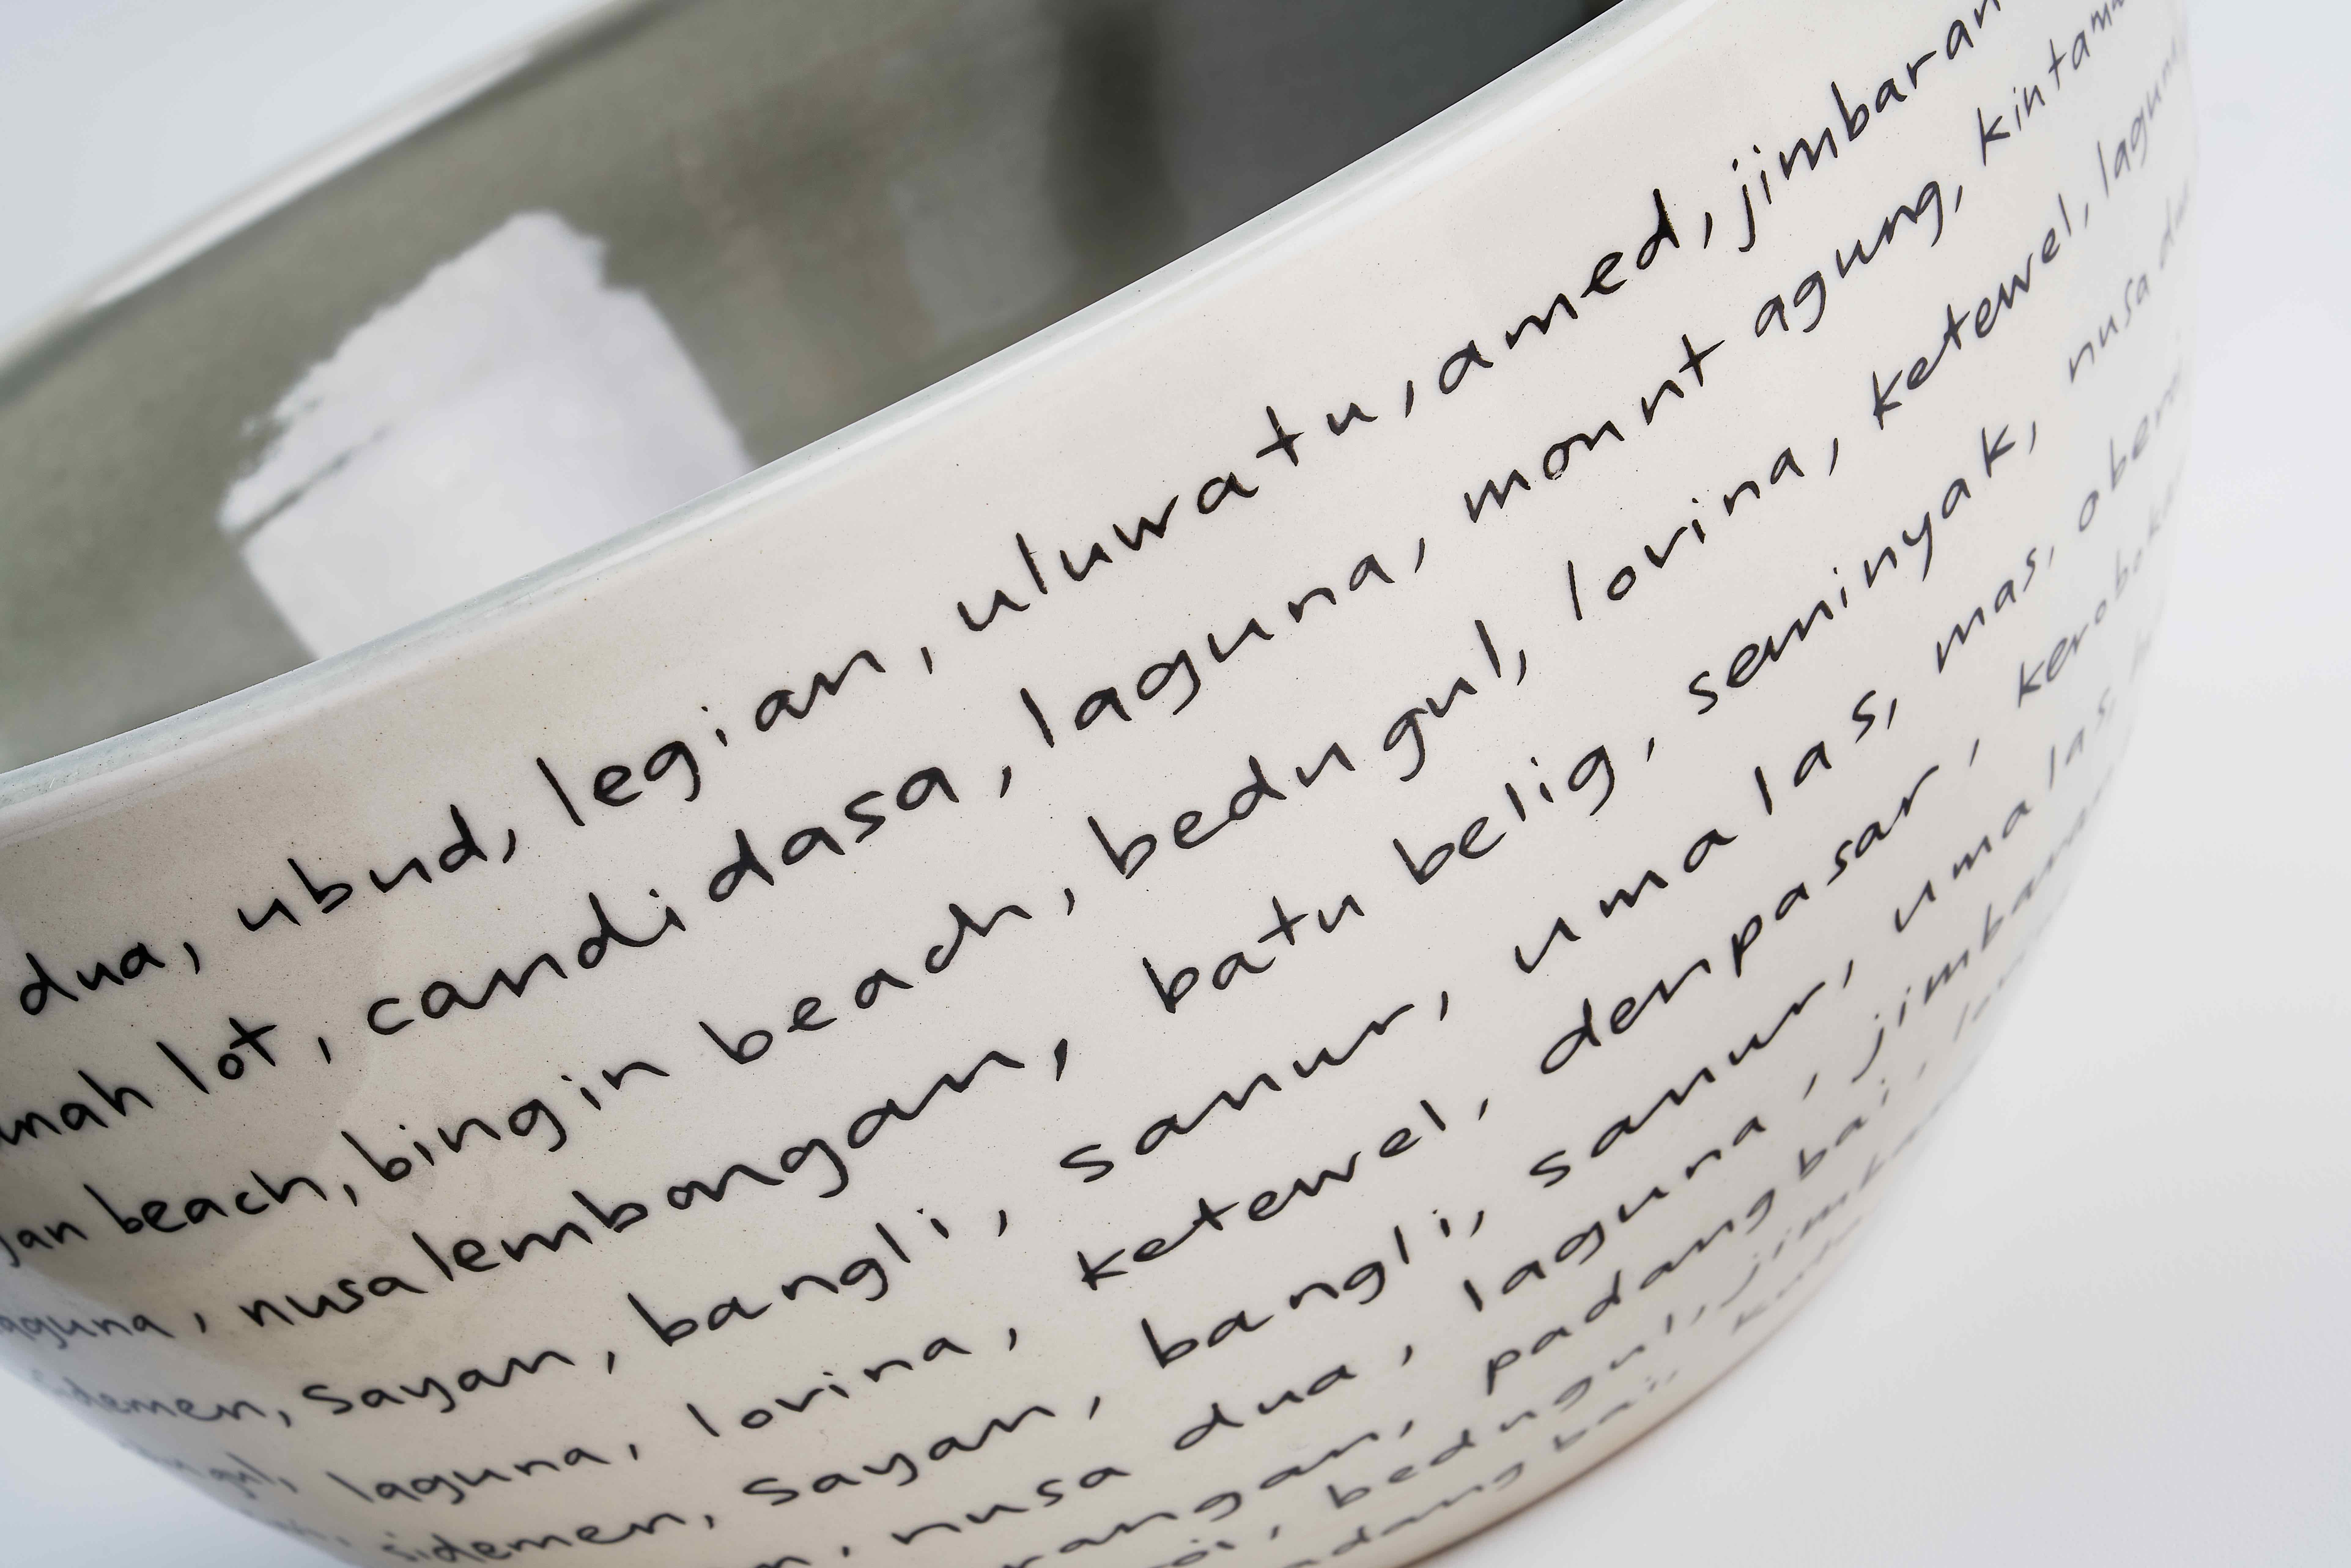 dua, ubud, legian, uluwatu, amed, jimbaran
lot, candi dasa, laguna, mount agung,
beach, bingin beach, bedugul, lovina, ketewel,
laguna, nusa lembongan, batu belig, seminyak, nusa
sidemen, sayan, bangli, sanur, uma las, mas,
laguna, lovina, ketewel, denpasar,
sidemen, sayan, bangli, sanur, uma las,
nusa dua, laguna, jimbaran
padang bai,
bedugul,
padang bai,